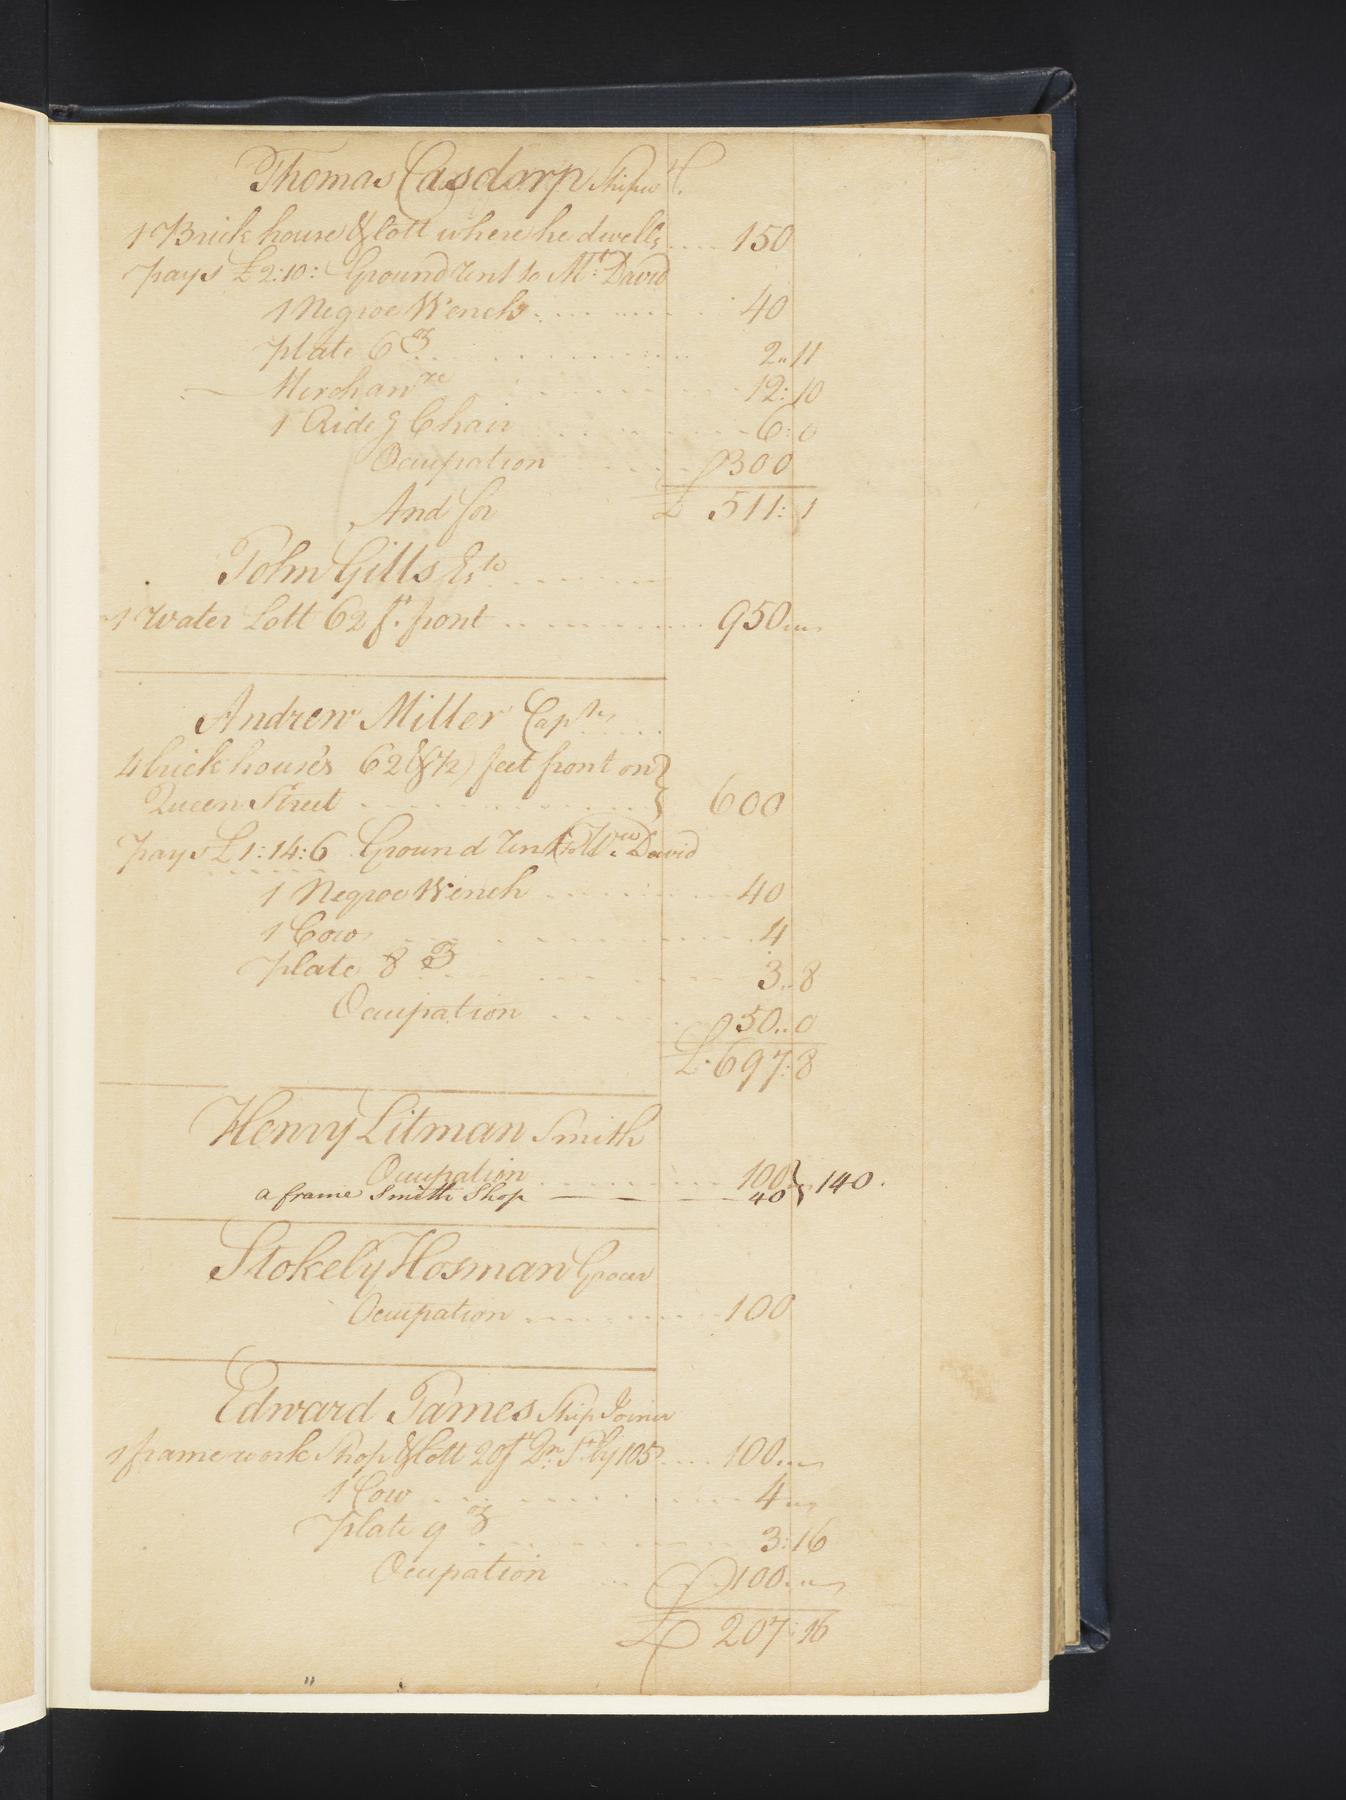 Thomas Casdorp Shipwt.
1 Brick house & lott where he dwells .... 150
pays £2:10: Ground rent to Mr. David
1 Negroe Wench 40
Plate 6 oz 2..11
Merchanze 12:10
1 Rideg Chair 6:0
Occupation 300
And for £ 511:1
John Gills Este
1 Water Lott 62 ft. front 950
Andrew Miller Captn
4 brick houses 62 (& 1/2) feet front on
Queen Street 600
pays £1:14:6 Ground rent David
1 Negroe Wench 40
1 Cow 4
Plate 8 oz 3..8
Occupation 50..0
£ 697:8
Henry Litman Smith
Occupation 100 } 140.
a frame Smith Shop 40
Stokely Hosman Grocer
Occupation 100
Edward James Ship Joiner
1 frame work Shop & lott 20f Qn. St. by 105 .... 100
1 Cow 4
Plate 9 oz 3:16
Occupation 100
£ 207:16